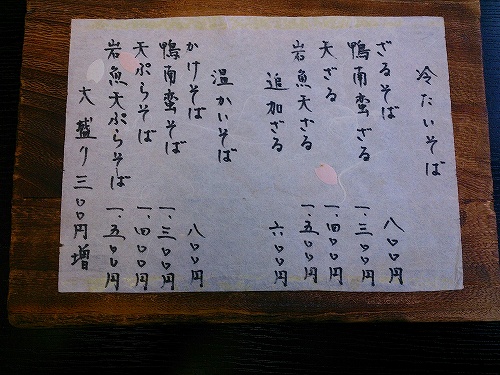 冷たいそば
ざるそば 八〇〇円
鴨南蛮ざる 一、三〇〇円
天ざる 一、四〇〇円
岩魚天ざる 一、五〇〇円
追加ざる 六〇〇円
温かいそば
かけそば 八〇〇円
鴨南蛮そば 一、三〇〇円
天ぷらそば 一、四〇〇円
岩魚天ぷらそば 一、五〇〇円
大盛り三〇〇円増